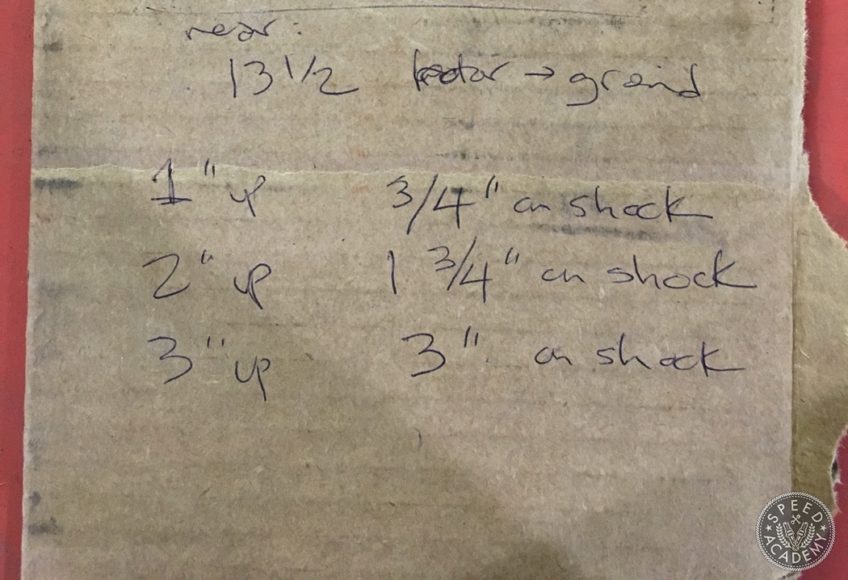 rear:
13 1/2 rotor → ground
1" up 3/4" on shock
2" up 1 3/4" on shock
3" up 3" on shock
SPEED ACADEMY